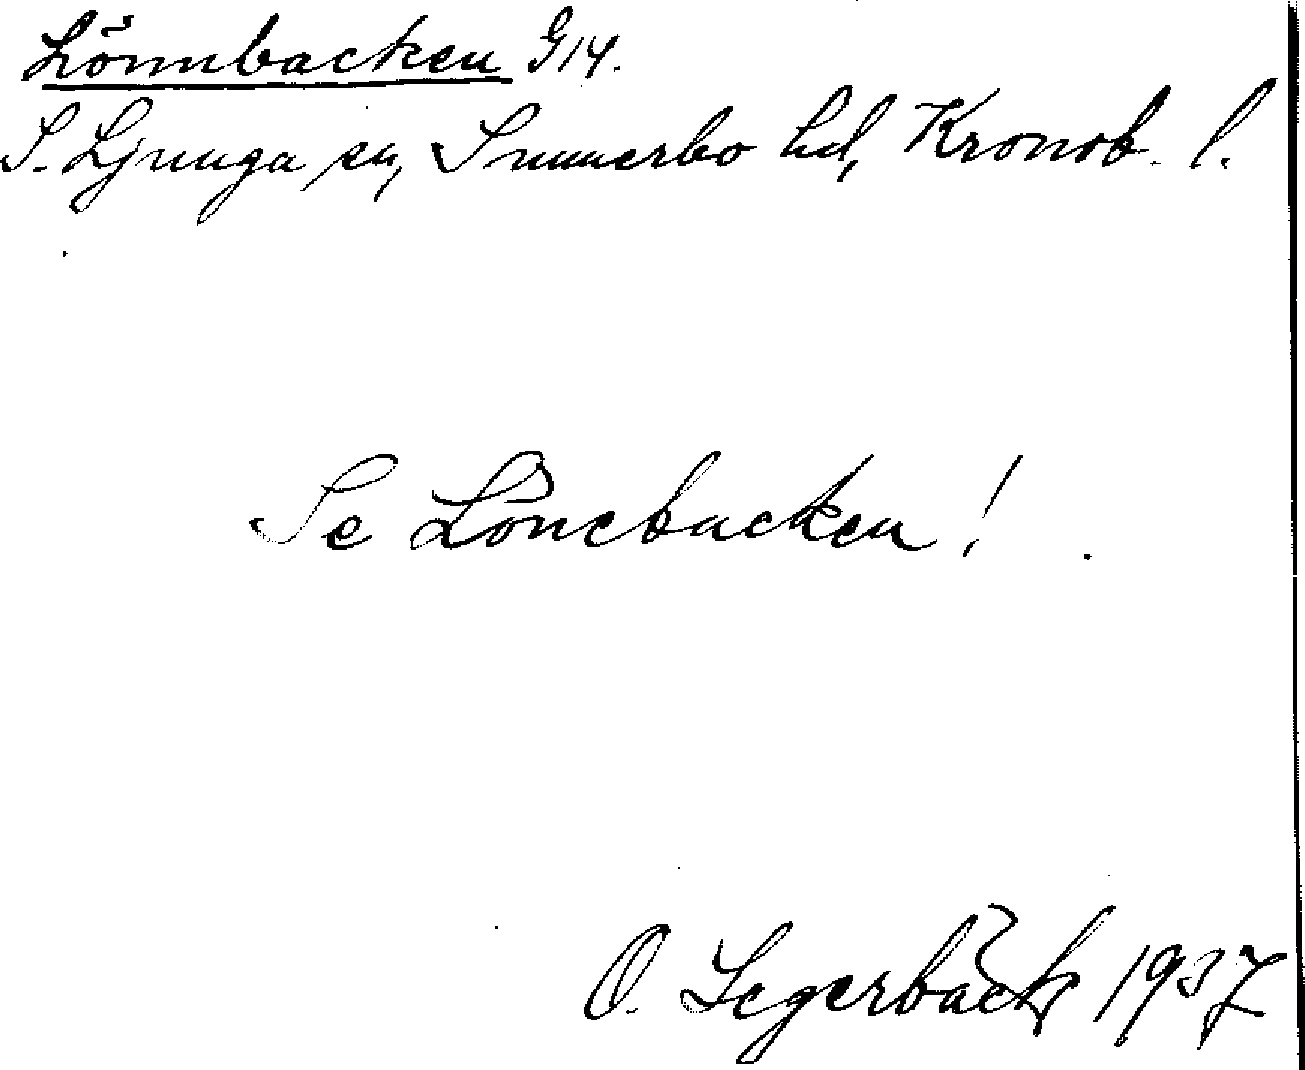 Lönnbacken G14.
S. Ljunga sn, Sunnerbo hd, Kronob. l.
Se Lönebacken!
O. Segerbäck 1937